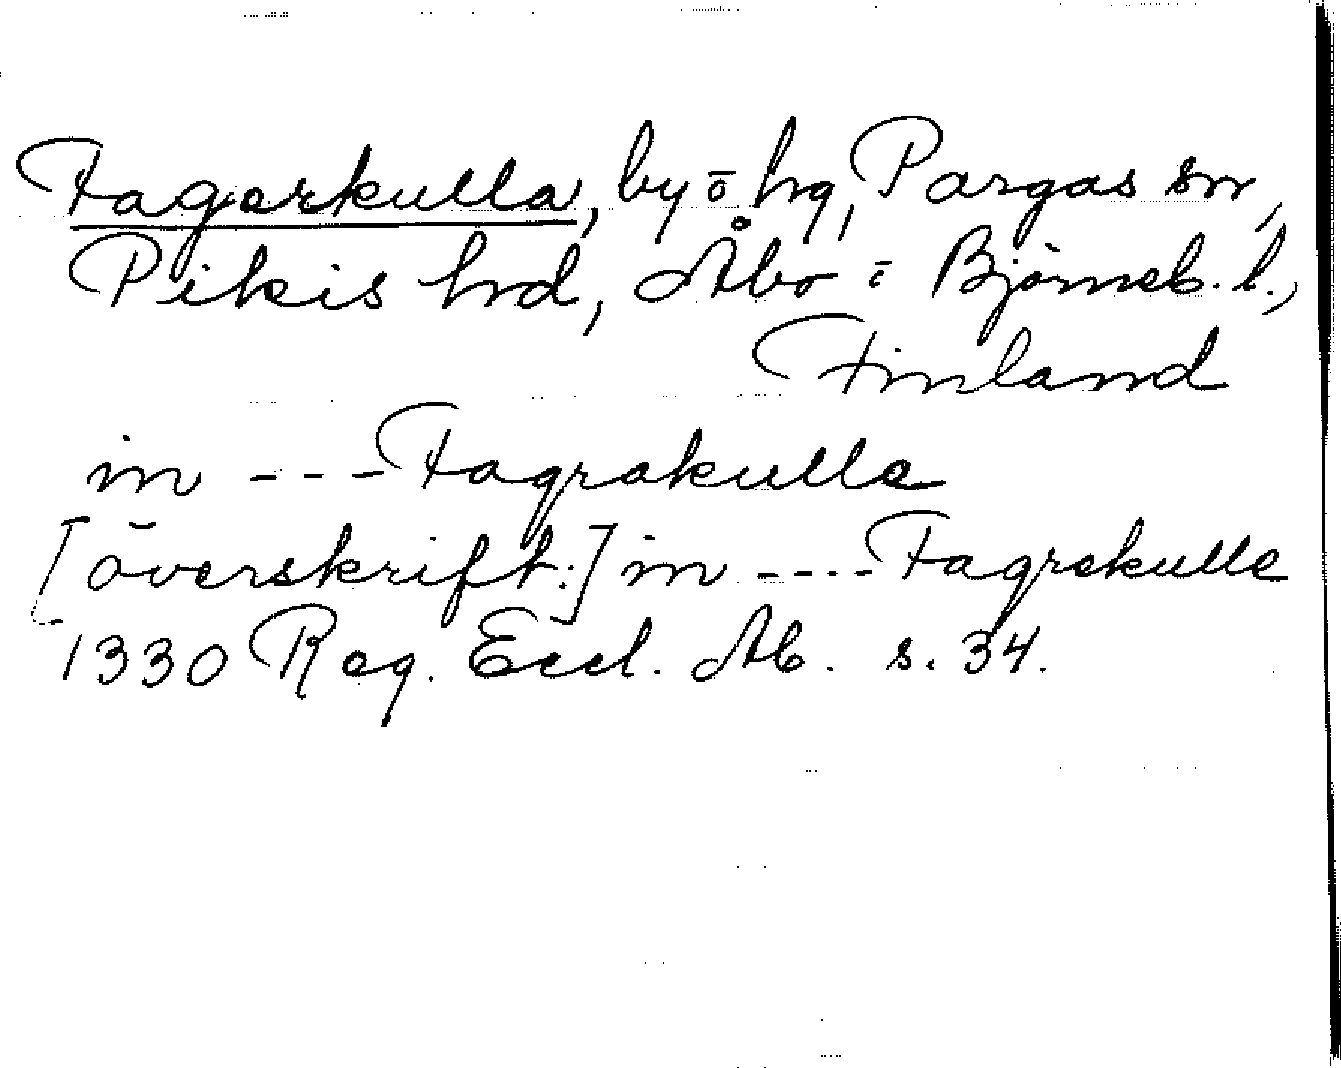 Fagerkulla, by ō hg, Pargas sn,
Pikis hrd, Åbo ō Björneb. l.,
Finland
in --- Fagrakulla
[överskrift:] in ---- Fagrakulle
1330 Reg. Eccl. Ab. s. 34.